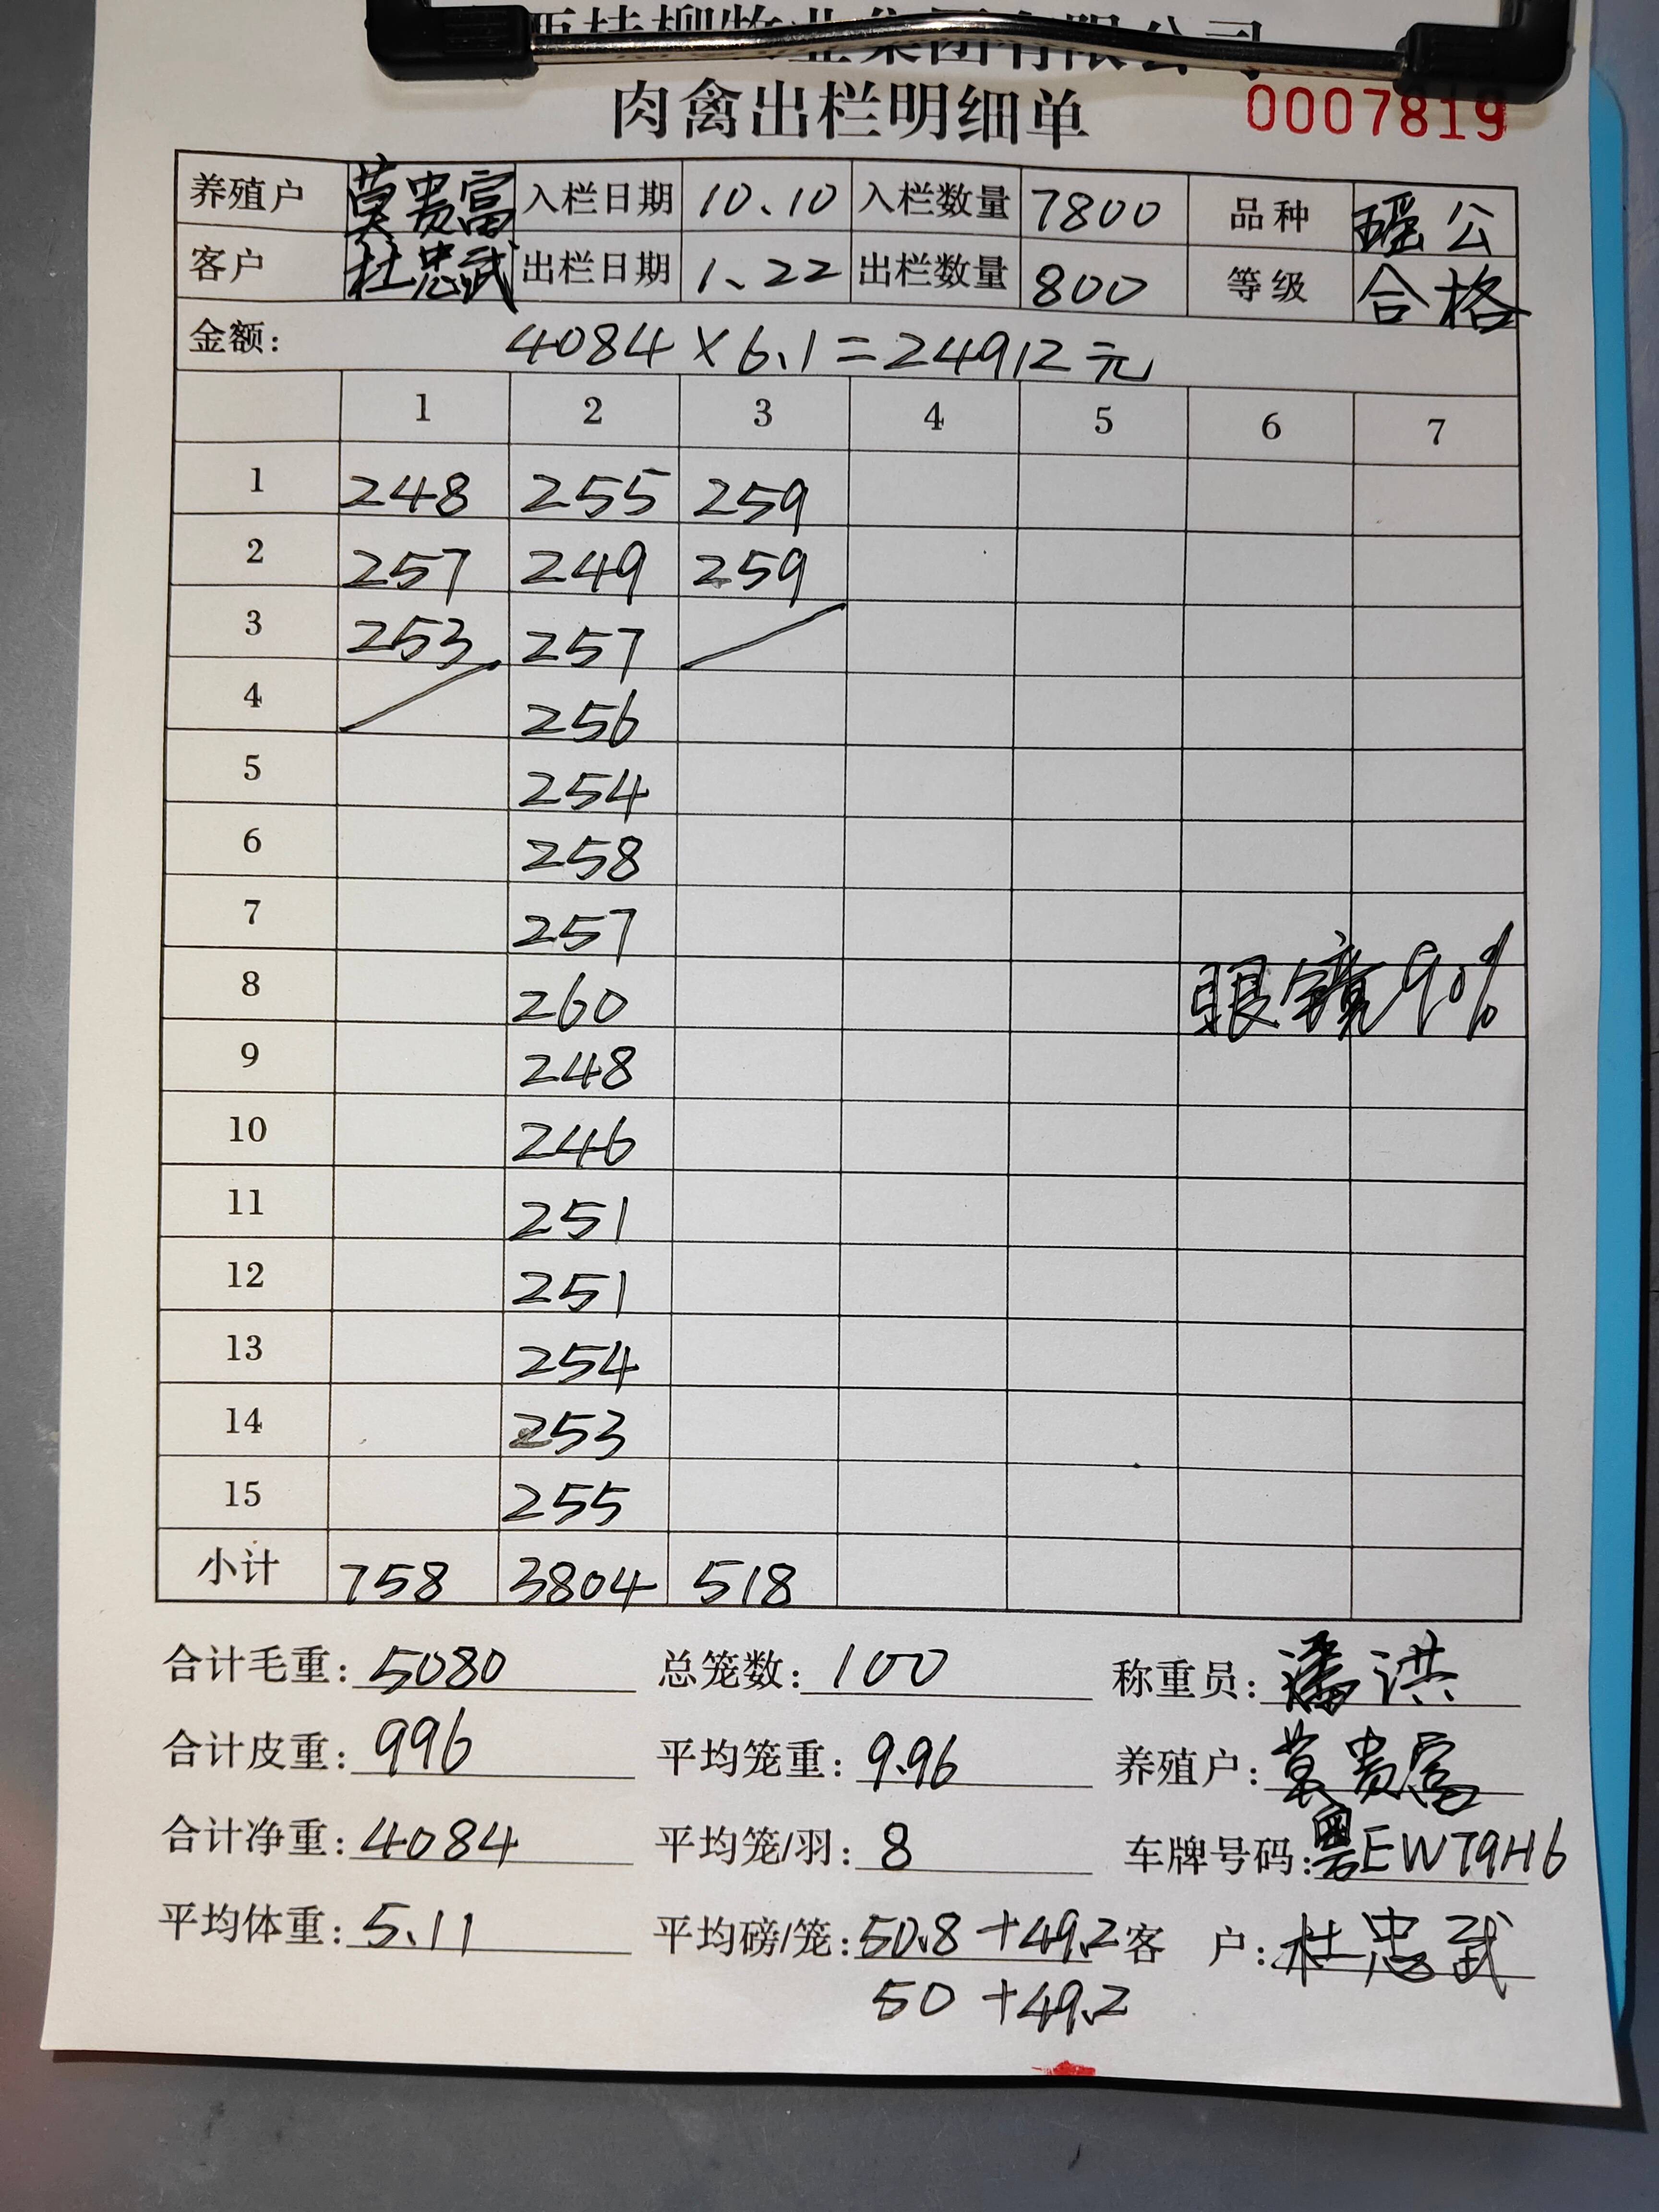 桂柳牧业集团有限公司
肉禽出栏明细单 0007819
养殖户 莫贵富 入栏日期 10.10 入栏数量 7800 品种 瑶公
客户 杜忠武 出栏日期 1.22 出栏数量 800 等级 合格
金额: 4084×6.1=24912元
1 2 3 4 5 6 7
1 248 255 259
2 257 249 259
3 253 257
4 256
5 254
6 258
7 257
8 260 眼镜90%
9 248
10 246
11 251
12 251
13 254
14 253
15 255
小计 758 3804 518
合计毛重: 5080 总笼数: 100 称重员: 潘洪
合计皮重: 996 平均笼重: 9.96 养殖户: 莫贵富
合计净重: 4084 平均笼/羽: 8 车牌号码: 粤EWT9H6
平均体重: 5.11 平均磅/笼: 50.8+49.2 客 户: 杜忠武
50+49.2